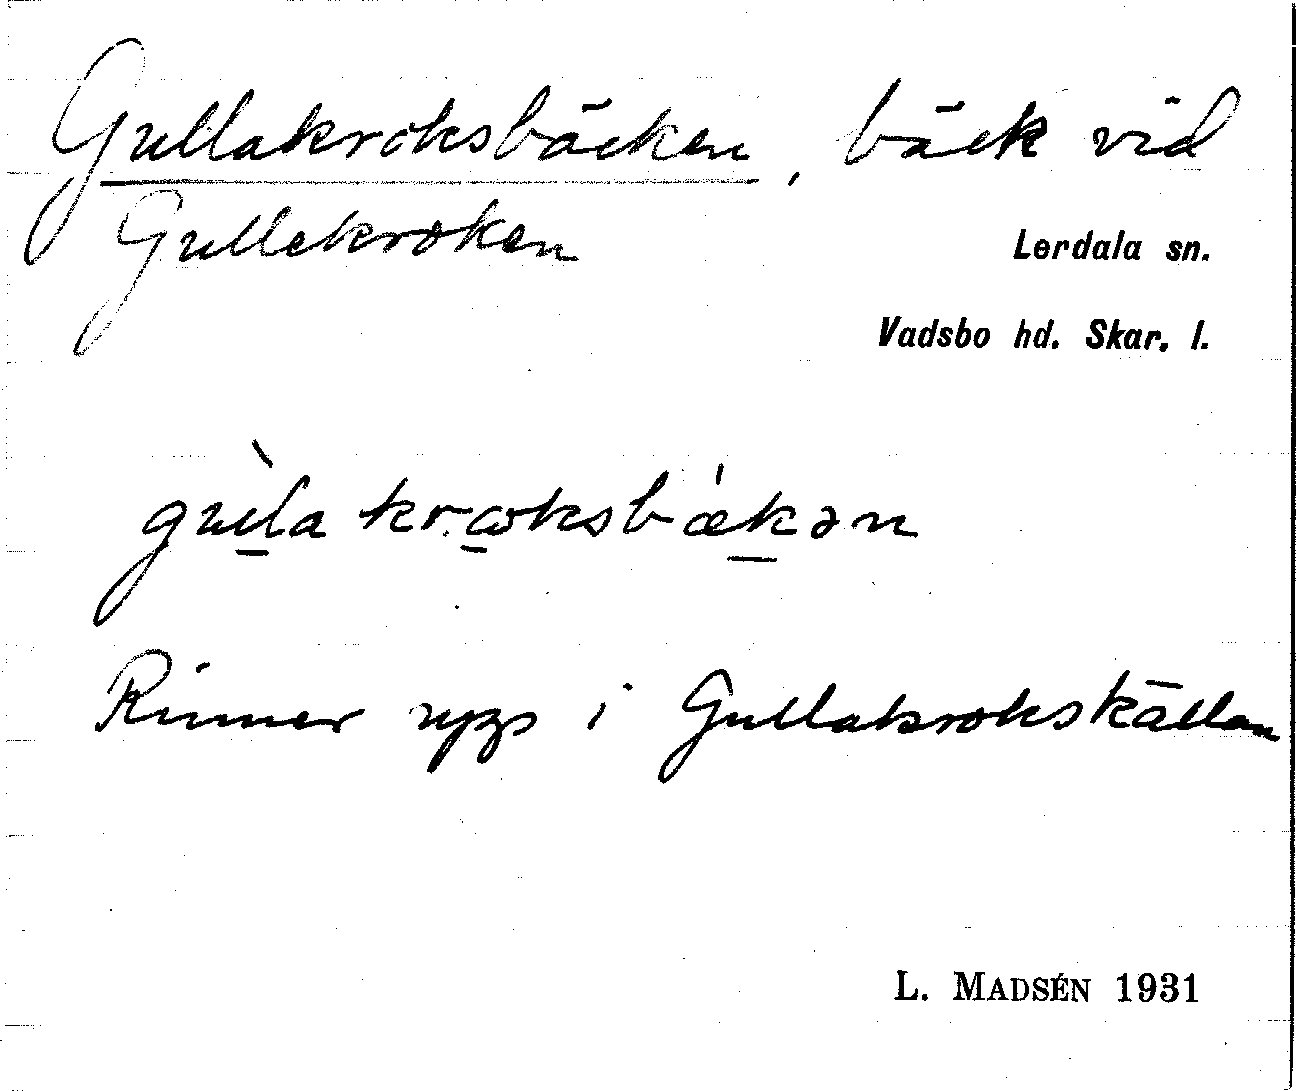 Gullakroksbäcken, bäck vid
Gullekroken
Lerdala sn.
Vadsbo hd. Skar. l.
gùla krɷksbǽkən
Rinner upp i Gullakrokskällan
L. MADSÉN 1931